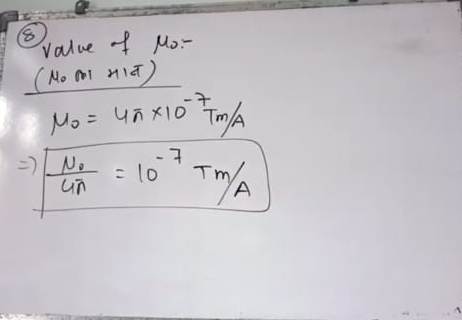 ⑧ Value of μ₀:-
(μ₀ का मान)
μ₀ = 4π×10⁻⁷ Tm/A
⇒ μ₀/4π = 10⁻⁷ Tm/A